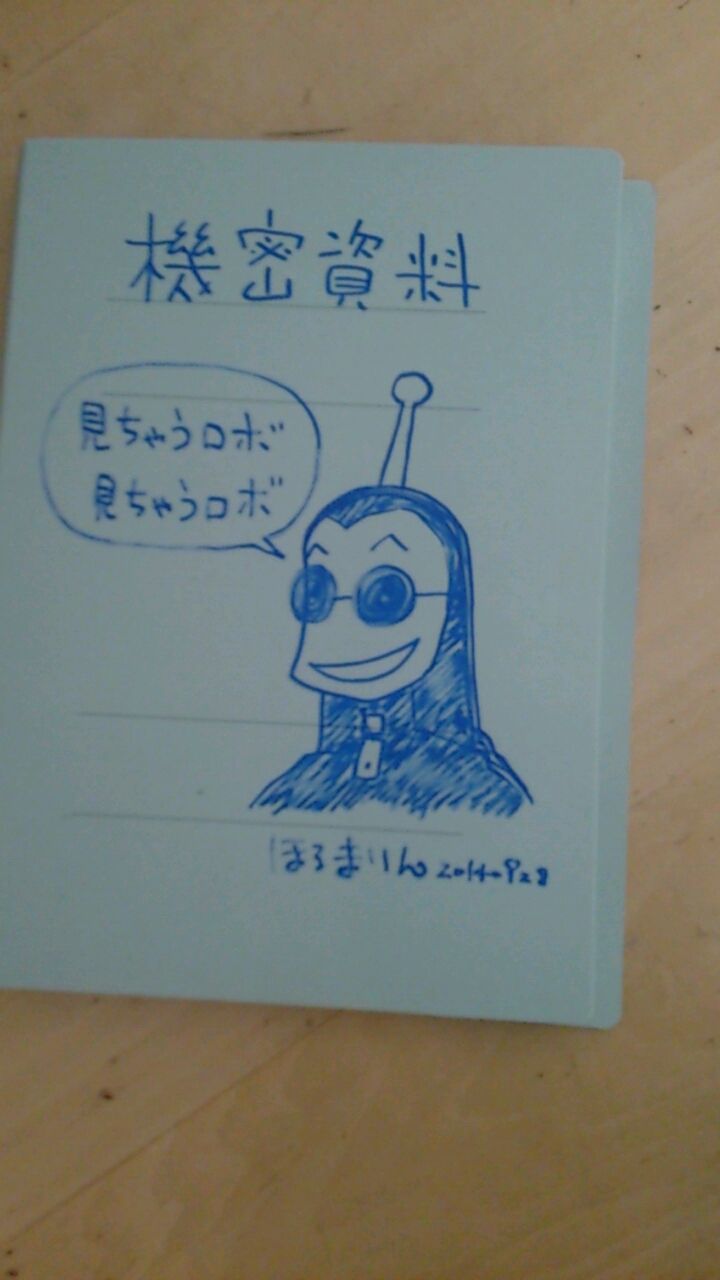 機密資料
見ちゃうロボ
見ちゃうロボ
ほろまりん 2014.9.28